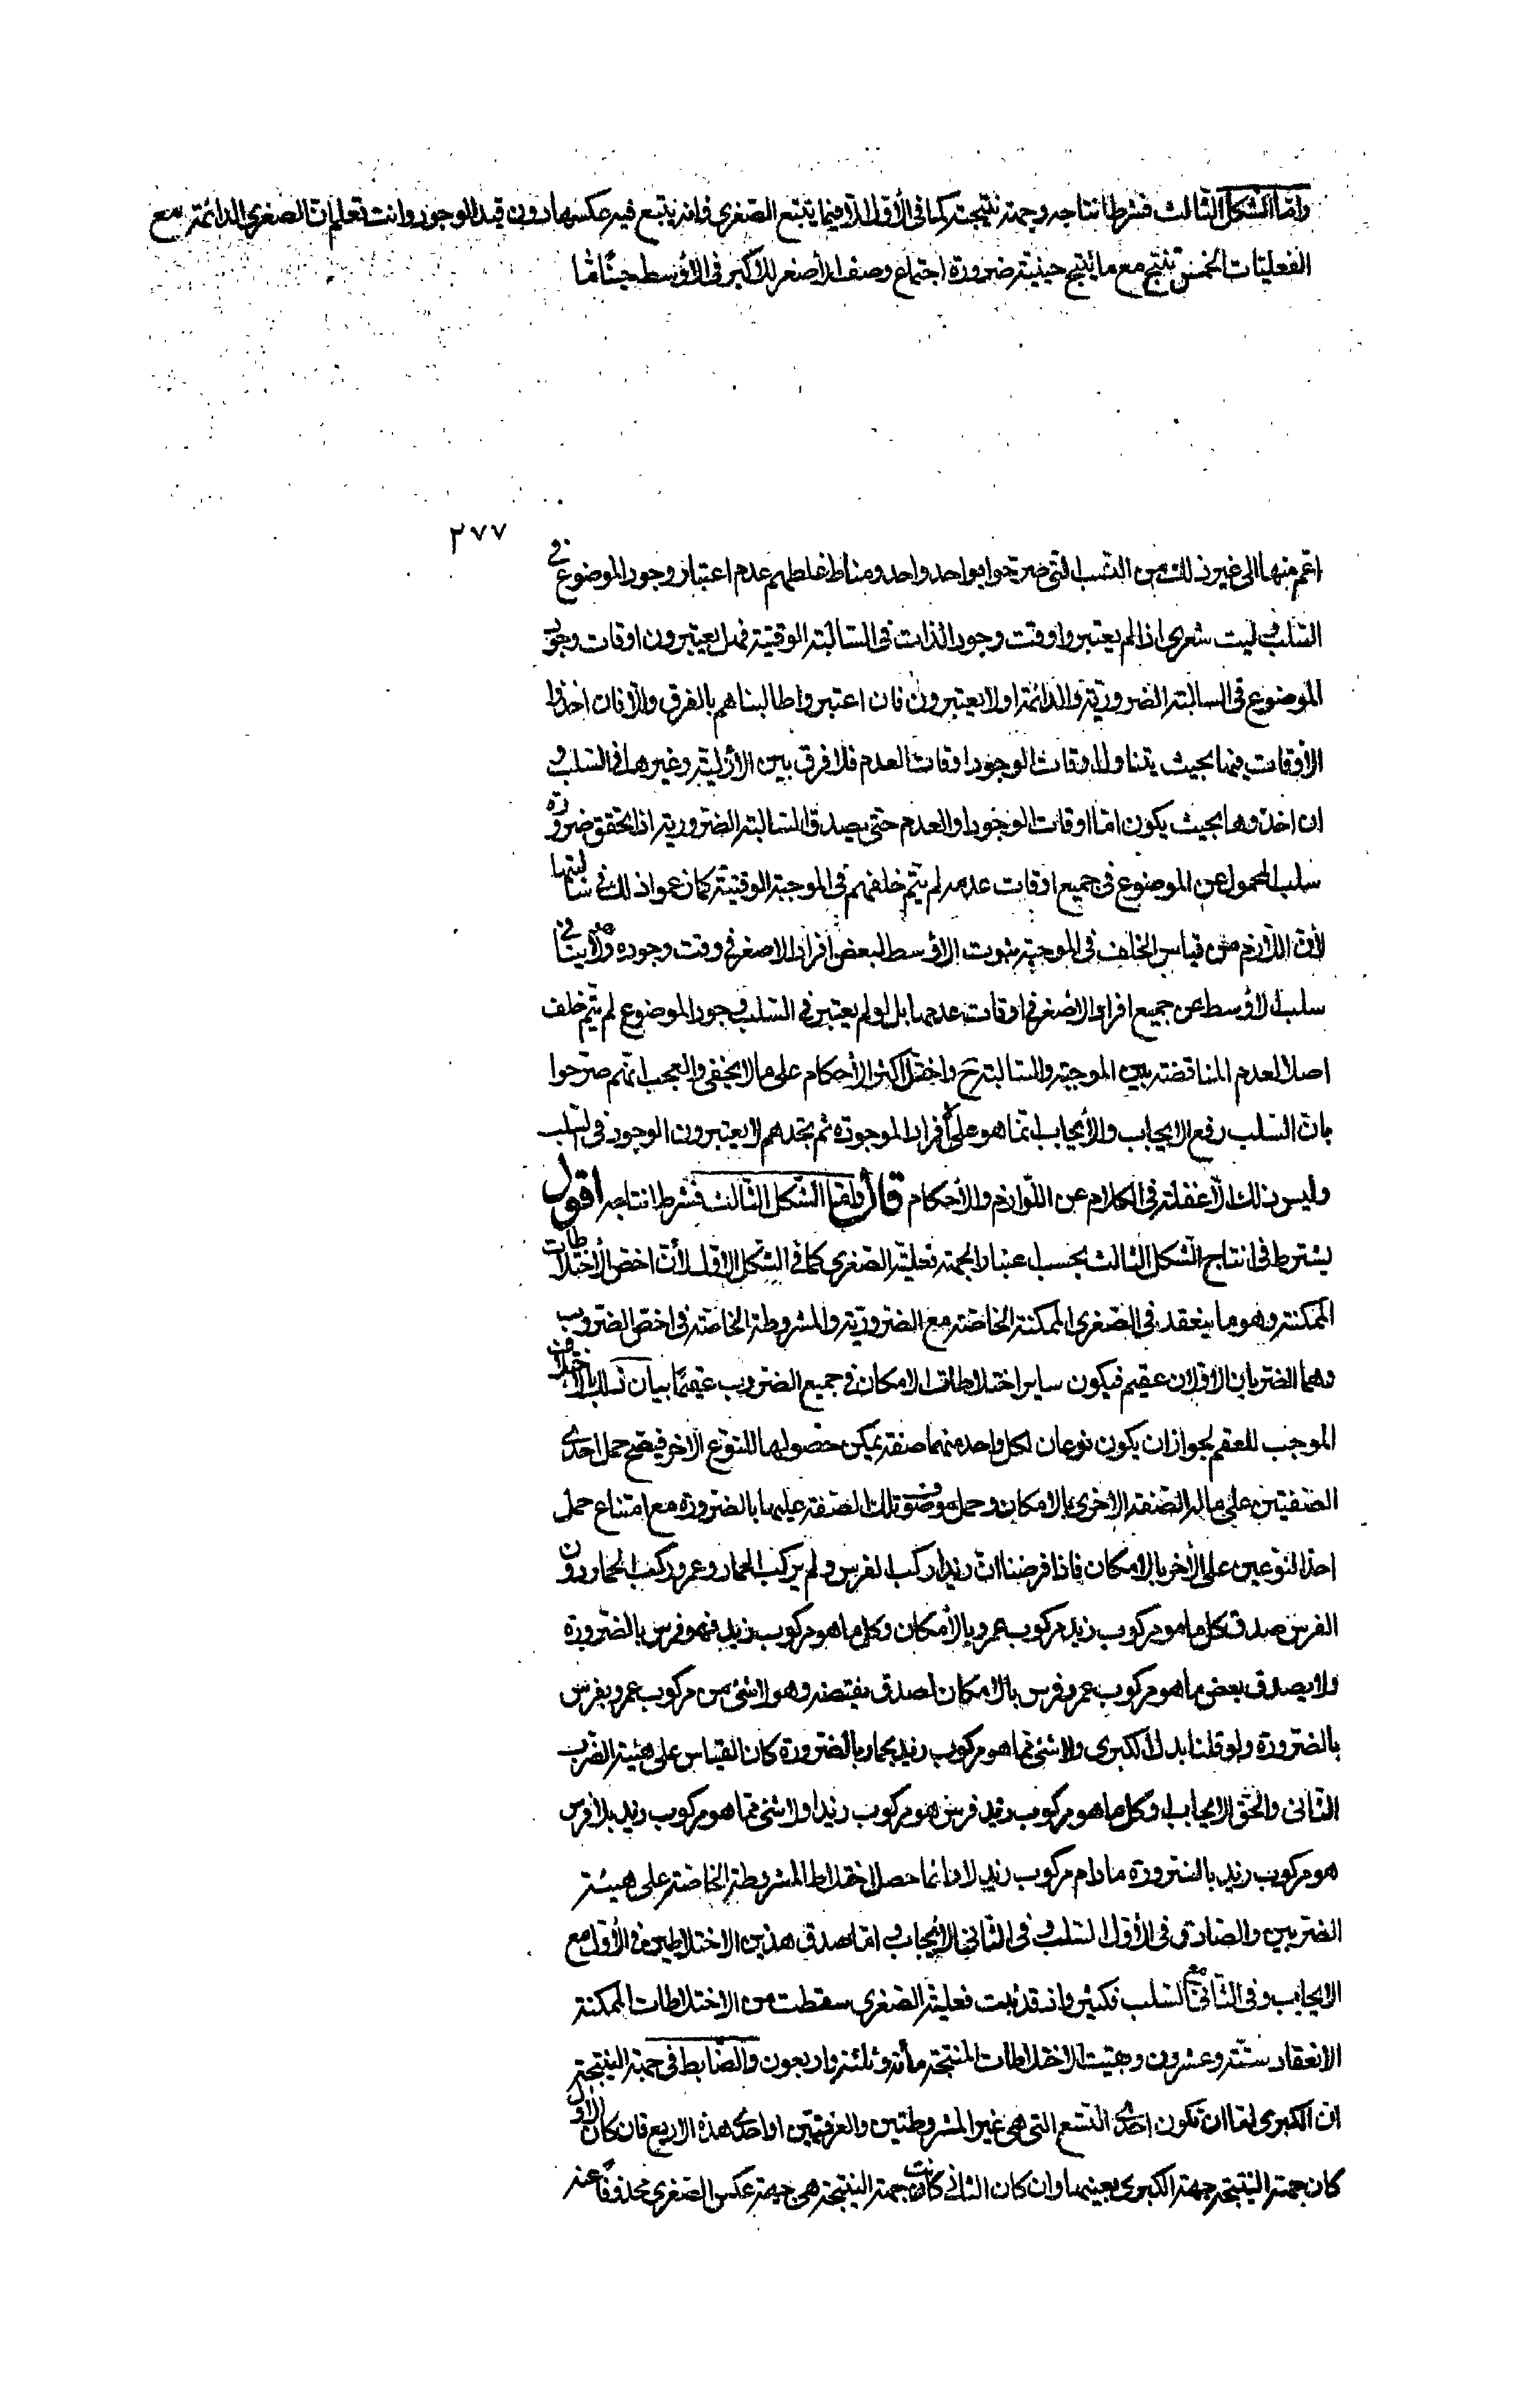 وامّا الشكل الثالث فشرط انتاجه وجهة نتيجته كما فى الأوّل الّا فيما يتبع الصّغرى فانه يتبع فيه عكسها دون قيد الوجود وانت تعلم ان الصغرى الدائمة مع
الفعليّات الخمس تنتج مع ما ينتج حينيّة ضرورة اجتماع وصف الأصغر للأكبر فى الأوسط حينًا مّا
٢٧٧
اعّم منها الى غير ذلك من النسب التى صرّحوا بواحد واحد ومناط غلطهم عدم اعتبار وجود الموضوع فى
السّلب وليت شعرى اذا لم يعتبروا وقت وجود الذات فى السّالبة الوقتيّة فهل يعتبرون اوقات وجود
الموضوع فى السالبة الضروريّة والدائمة او لا يعتبرون فان اعتبروا طالبناهم بالفرق والّا فان اخذوا
الأوقات فيها بحيث يتناول اوقات الوجود اوقات العدم فلا فرق بين الأزليّة وغيرها فى السّلب و
ان اخذوها بحيث يكون امّا اوقات الوجود او العدم حتى يصدق السّالبة الضّروريّة اذا تحقق ضرورة
سلب المحمول عن الموضوع فى جميع اوقات عدمه لم يتّم خلفهم فى الموجبة الوقتيّة كما زعموا ذلك فى سالبتها
لأنّ اللّازم من قياس الخلف فى الموجبة ثبوت الأوسط لبعض افراد الاصغر فى وقت وجوده وهو لا ينافى
سلب الأوسط عن جميع افراد الأصغر فى اوقات عدمها بل لو لم يعتبر فى السّلب وجود الموضوع لم يتّم خلف
اصلا لعدم المناقضة بين الموجبة والسّالبة ح واختلّ اكثر الأحكام على ما لا يخفى والعجب انّهم صرّحوا
بانّ السّلب رفع الايجاب والأيجاب انّما هو على الأفراد الموجودة ثم تجدهم لا يعتبرون الوجود فى السّلب
وليس ذلك الّا غفلة فى الكلام عن اللّوازم والأحكام قال وامّا الشكل الثّالث فشرط انتاجه اقول
يشترط فى انتاج الشكل الثالث بحسب اعتبار الجهة فعليّة الصّغرى كما فى الشكل الاوّل لأنّ اخصّ الأختلاطات
الممكنة وهو ما ينعقد فى الصّغرى الممكنة الخاصّة مع الضّروريّة والمشروطة الخاصّة فى اخصّ الضّروب
وهما الضّربان الاوّلان عقيم فيكون ساير اختلاطات الامكان فى جميع الضروب عقيمًا بيان ذلك بالاختلاف
الموجب للعقم لجواز ان يكون نوعان لكل واحد منهما صفة يمكن حصولها للنّوع الآخر فيصّح حمل احدى
الصّفتين على ما له الصّفة الاخرى بالامكان وحمل موصوف تلك الصّفة عليها بالضرورة مع امتناع حمل
احد النّوعين على الأخر بالامكان فاذا فرضنا انّ زيدا ركب الفرس ولم يركب الحمار وعمرو ركب الحمار دون
الفرس صدق كل ما هو مركوب زيد مركوب عمرو بالأمكان وكل ما هو مركوب زيد فهو فرس بالضّرورة
ولا يصدق بعض ما هو مركوب عمرو فرس بالامكان لصدق نقيضه وهو لا شئ من مركوب عمرو بفرس
بالضّرورة ولو قلنا بدل الكبرى ولا شئ ممّا هو مركوب زيد بحمار بالضّرورة كان القياس على هيئة الضرب
الثّانى والحقّ الايجاب وكل ما هو مركوب زيد فرس هو مركوب زيد او لا شئ ممّا هو مركوب زيد بلا فرس
هو مركوب زيد بالضّرورة ما دام مركوب زيد لا دائما حصل اختلاط المشروطة الخاصّة على هيئة
الضّربين والصّادق فى الأوّل السّلب وفى الثّانى الأيجاب وامّا صدق هذين الاختلاطين فى الأوّل مع
الايجاب وفى الثّانى مع السّلب فكثير واذ قد ثبت فعليّة الصّغرى سقطت من الاختلاطات الممكنة
الانعقاد ستّة وعشرون وبقيت الاختلاطات المنتجة مأئة وثلثة واربعون والضّابط فى جهة النّتيجة
انّ الكبرى امّا ان تكون احدى التّسع التى هى غير المشروطتين والعرفيّتين او احدى هذه الاربع فان كان الاوّل
كان جهة النّتيجة جهة الكبرى بعينها وان كان الثانى كانت جهة النّتيجة هى جهة عكس الصّغرى محذوفًا عنه